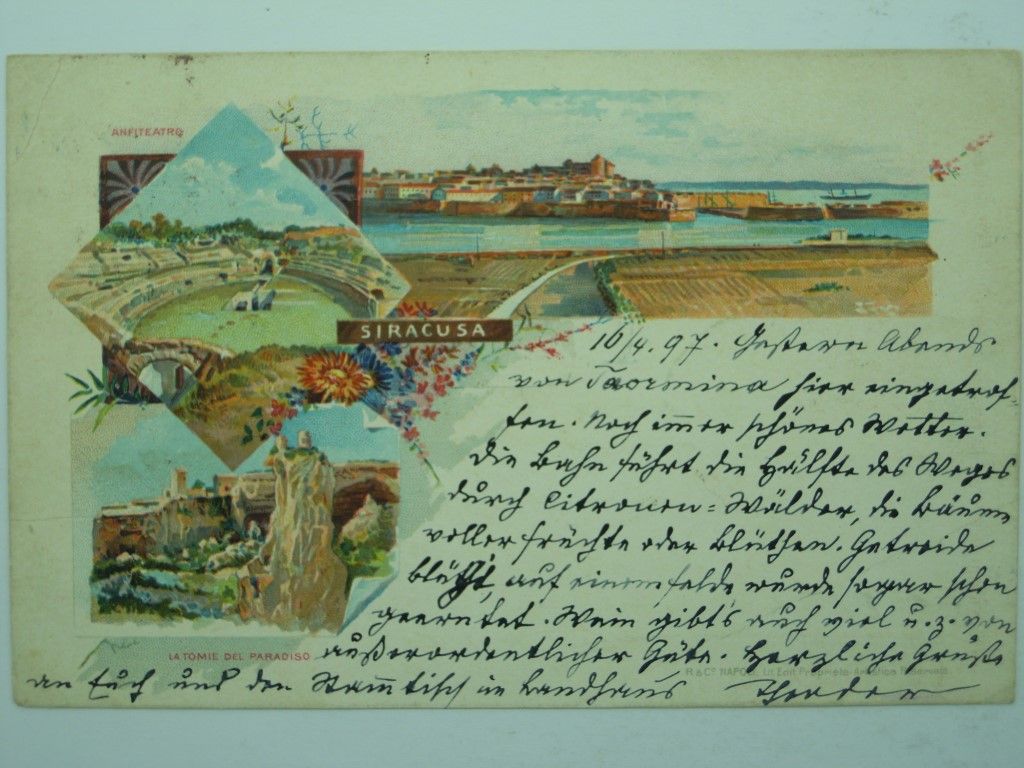 ANFITEATRO
SIRACUSA
16/4. 97. Gestern Abends
von Taormina hier eingetrof-
fen. Noch immer schönes Wetter.
Die Bahn führt die Hälfte des Weges
durch Citronen=Wälder, die Bäume
voller Früchte oder Blüthen. Getreide
blüht, auf einem Felde wurde sogar schon
geerntet. Wein gibt's auch viel u. z. von
LATOMIE DEL PARADISO außerordentlicher Güte. Herzliche Grüße
R & Co. NAPOLI
an Euch und den Stammtisch im Landhaus Theodor